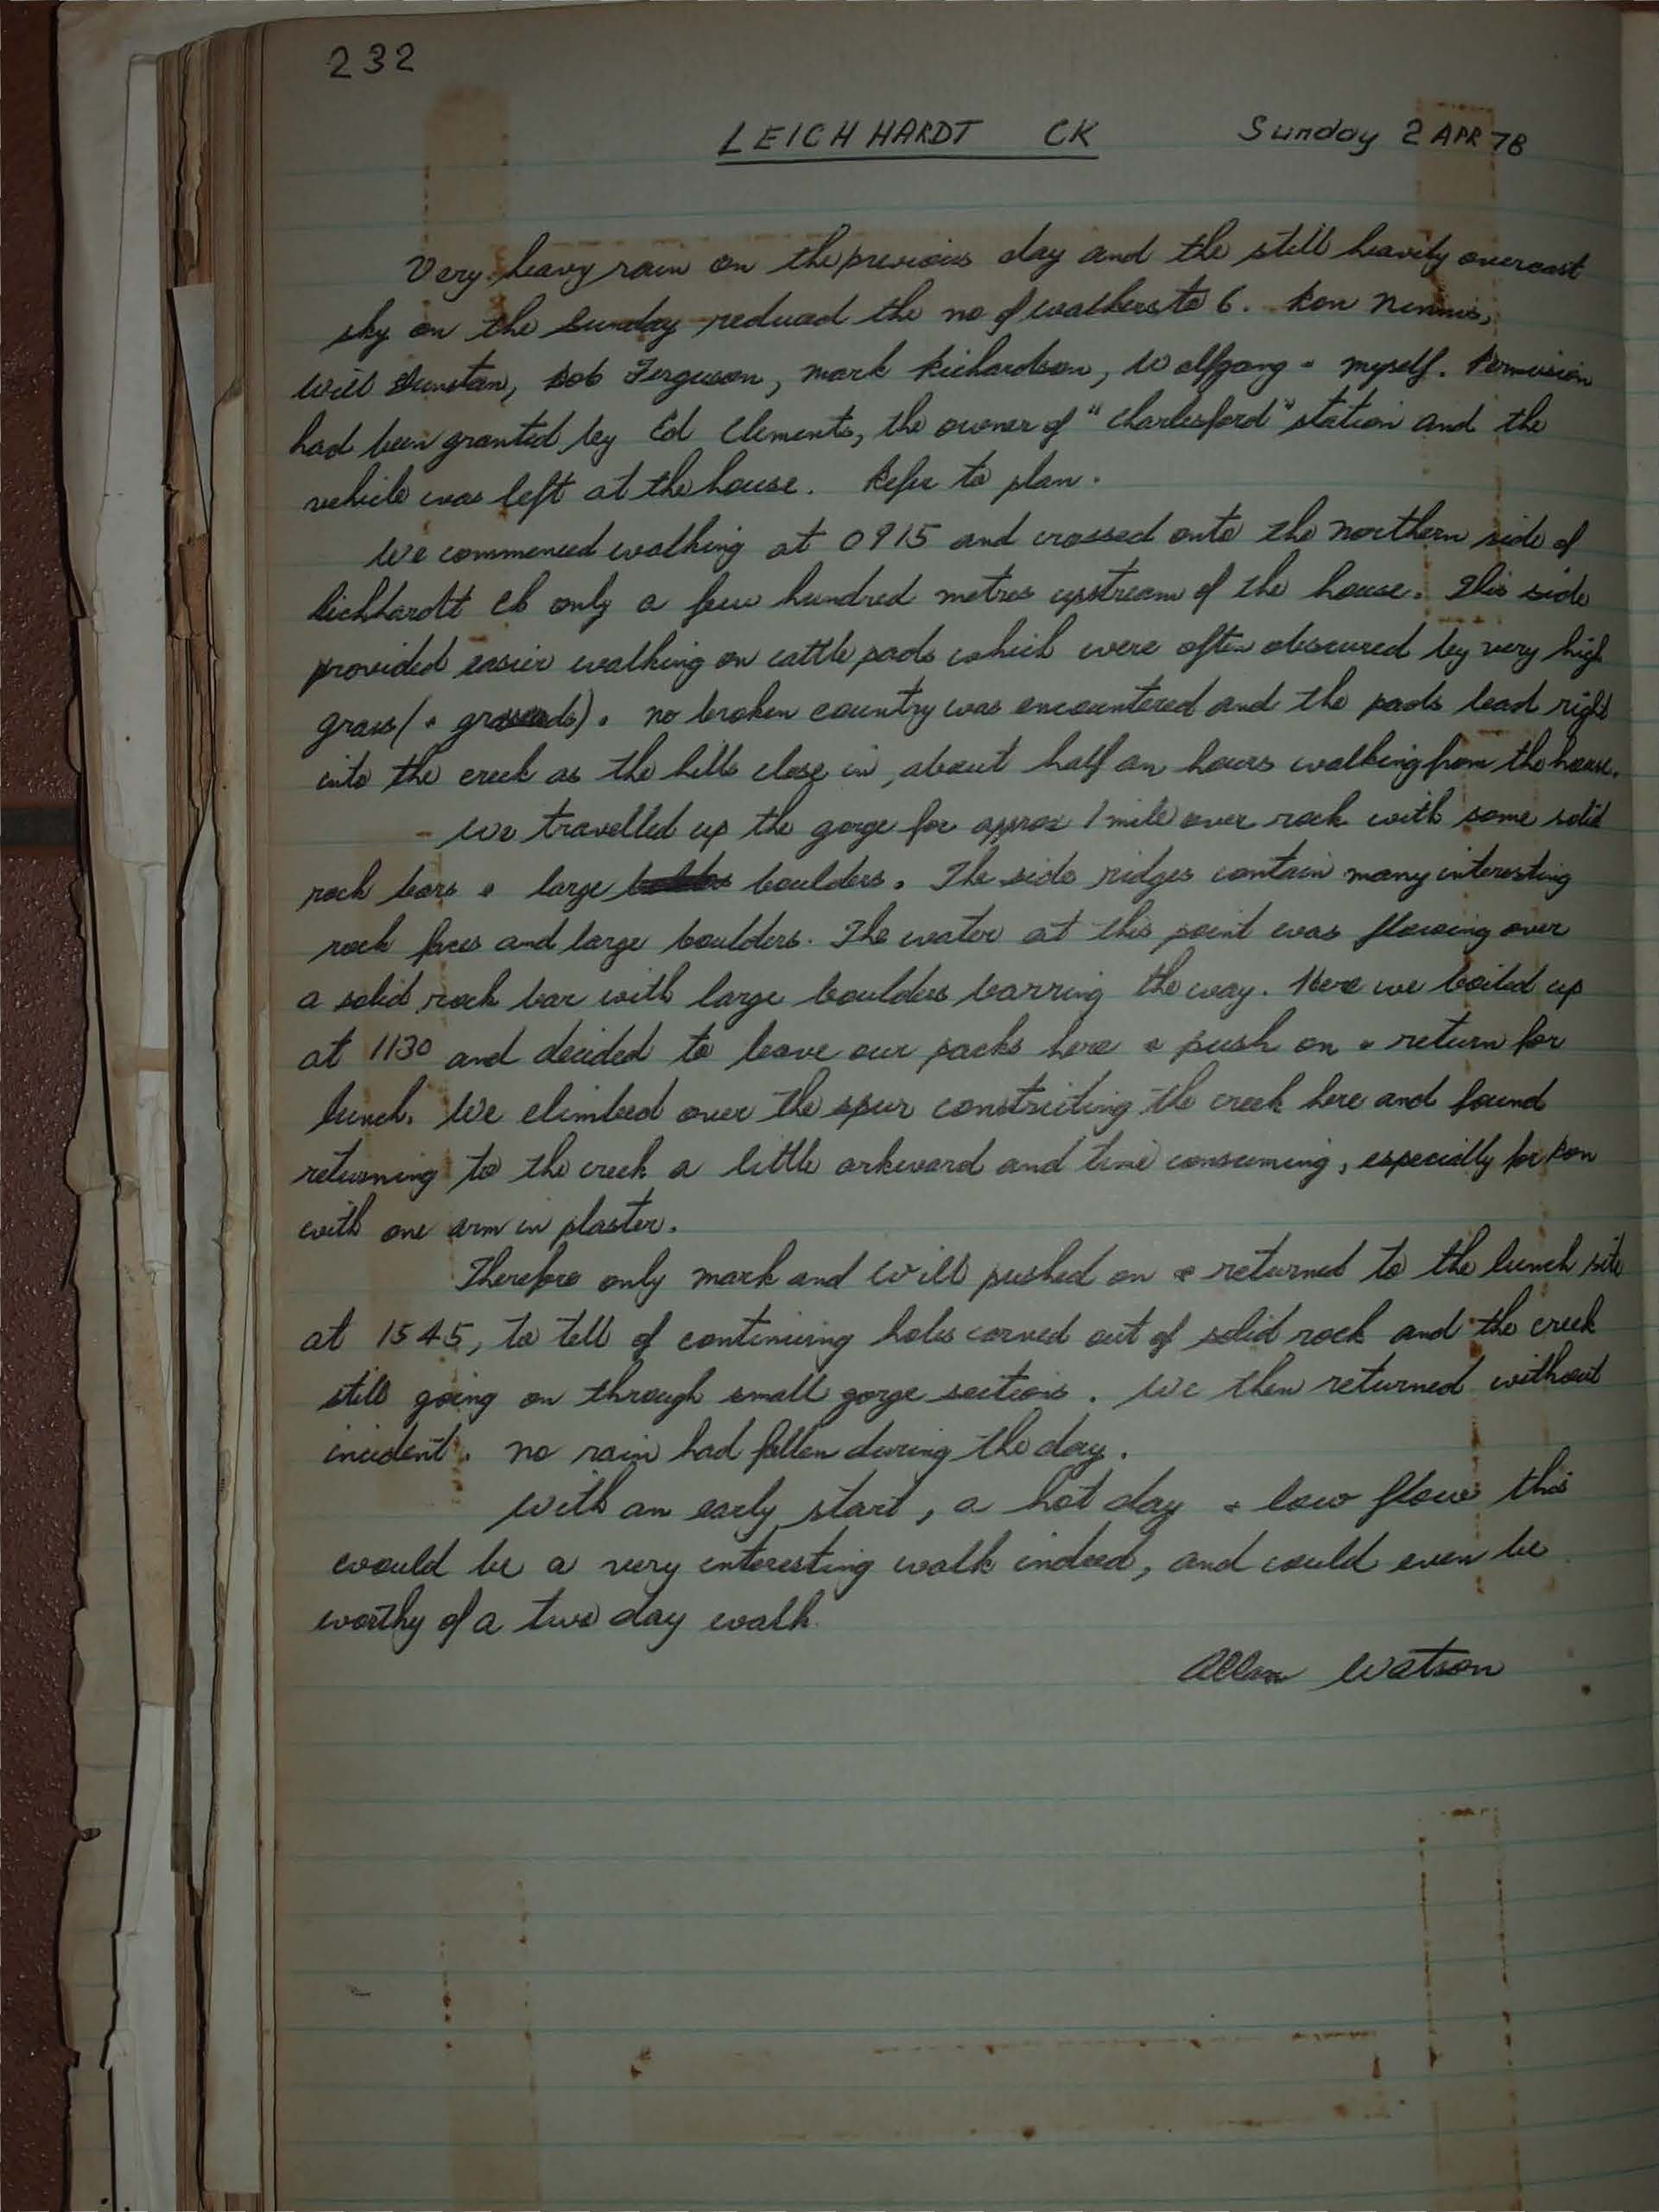 232
LEICHHARDT CK Sunday 2 APR 78
Very heavy rain on the previous day and the still heavily overcast
sky on the Sunday reduced the no of walkers to 6. Ron Nennis,
Will Dunstan, Bob Ferguson, Mark Richardson, Wolfgang & myself. Permission
had been granted by Ed Clements, the owner of "Charlesford" station and the
vehicle was left at the house. Refer to plan.
We commenced walking at 0915 and crossed onto the northern side of
Leichhardt Ck only a few hundred metres upstream of the house. This side
provided easier walking on cattle pads which were often obscured by very high
grass (& grass seeds). No broken country was encountered and the pads lead right
into the creek as the hills close in, about half an hours walking from the house.
We travelled up the gorge for approx 1 mile over rock with some solid
rock bars & large boulders. The side ridges contain many interesting
rock faces and large boulders. The water at this point was flowing over
a solid rock bar with large boulders barring the way. Here we boiled up
at 1130 and decided to leave our packs here & push on & return for
lunch. We climbed over the spur constricting the creek here and found
returning to the creek a little arkward and time consuming, especially for Ron
with one arm in plaster.
Therefore only Mark and Will pushed on & returned to the lunch site
at 1545, to tell of continuing holes carved out of solid rock and the creek
still going on through small gorge sections. We then returned without
incident. No rain had fallen during the day.
With an early start, a hot day & low flow this
would be a very interesting walk indeed, and could even be
worthy of a two day walk.
Allan Watson